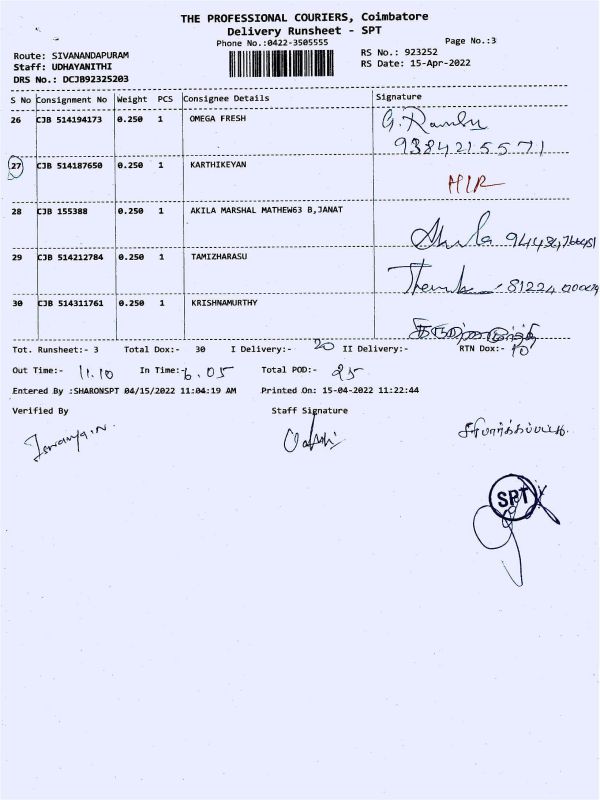 THE PROFESSIONAL COURIERS, Coimbatore
Delivery Runsheet - SPT
Phone No.:0422-3505555 Page No.:3
Route: SIVANANDAPURAM RS No.: 923252
Staff: UDHAYANITHI RS Date: 15-Apr-2022
DRS No.: DCJB92325203
S No Consignment No Weight PCS Consignee Details Signature
26 CJB 514194173 0.250 1 OMEGA FRESH
9384215571
27 CJB 514187650 0.250 1 KARTHIKEYAN
28 CJB 155388 0.250 1 AKILA MARSHAL MATHEW63 B,JANAT
29 CJB 514212784 0.250 1 TAMIZHARASU
30 CJB 514311761 0.250 1 KRISHNAMURTHY
Tot. Runsheet:- 3 Total Dox:- 30 I Delivery:- 20 II Delivery:- RTN Dox:- 10
Out Time:- 11.10 In Time:- 6.05 Total POD:- 25
Entered By :SHARONSPT 04/15/2022 11:04:19 AM Printed On: 15-04-2022 11:22:44
Verified By Staff Signature
SPT